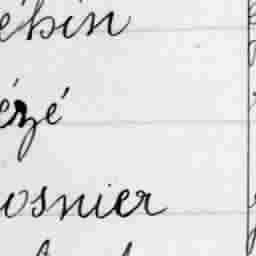 ébin
ézé
osnier